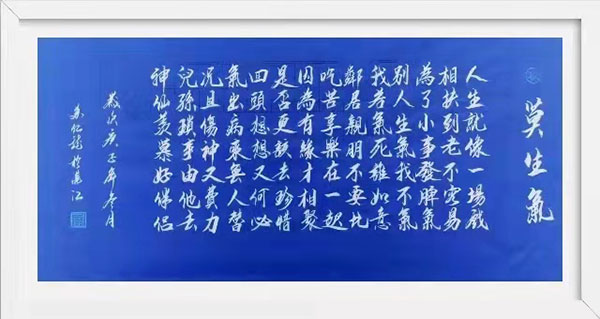 莫生氣
人生就像一場戲
相扶到老不容易
為了小事發脾氣
別人生氣我不氣
我若氣死誰如意
鄰居親朋不要比
吃苦享樂在一起
因為有緣才相聚
是否更該去珍惜
回頭想想又何必
氣出病來無人替
況且傷神又費力
兒孫瑣事由他去
神仙羨慕好伴侶
歲次庚子年冬月
於湛江